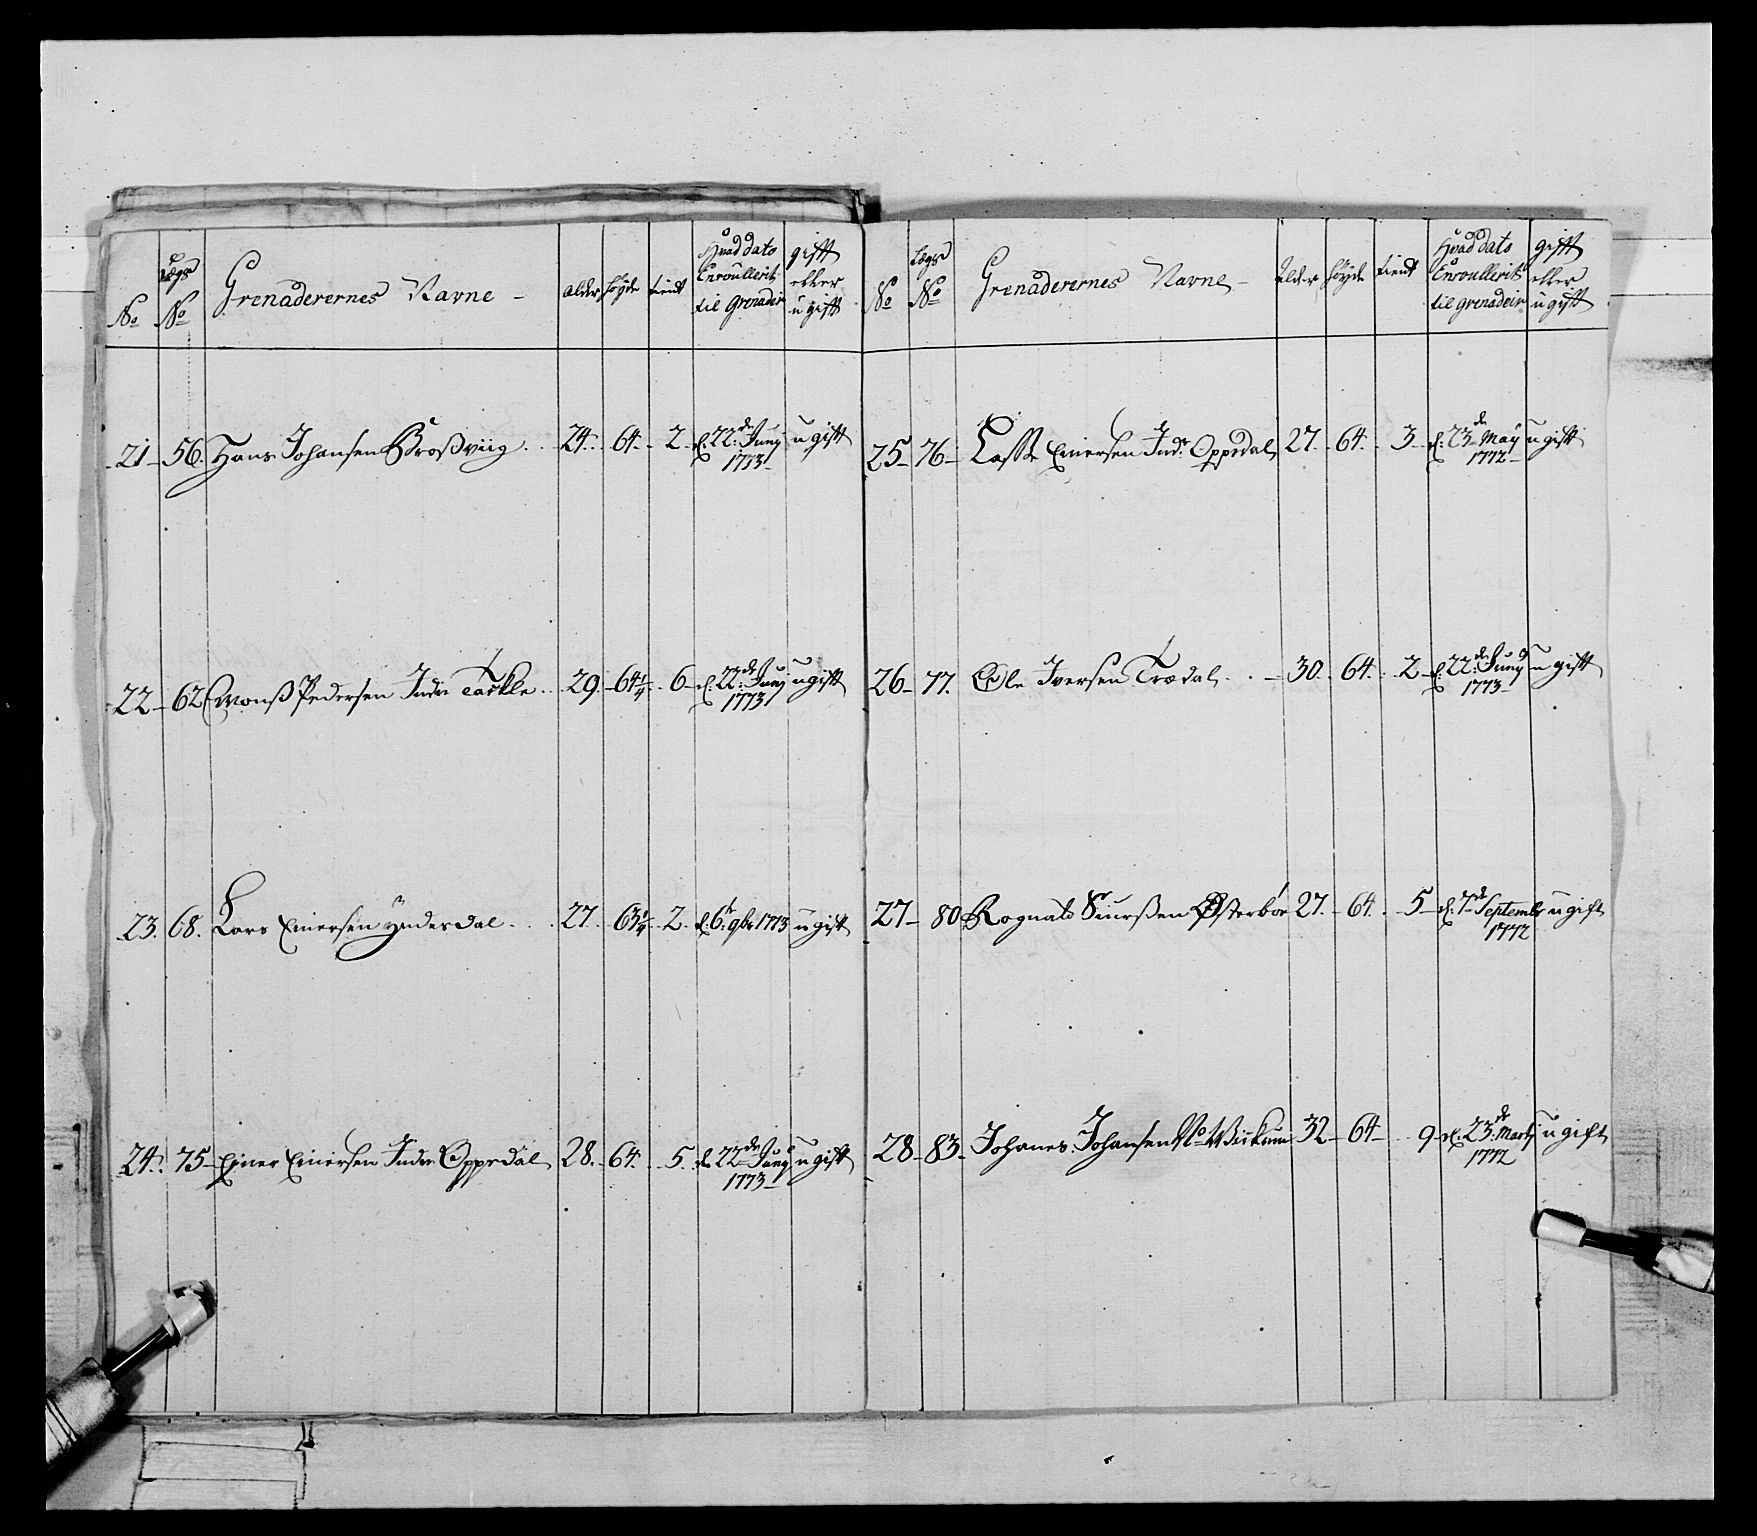 No Lægs No Grenaderernes Navne - Alder höyde tient Hvad dato Enroulleret til Grenader gifft eller ugifft
21 56. Hans Johansen Broßviig. 24. 64. 2 d: 22de Juny 1773 ugifft
22 62 Monß Pedersen Indre Tackle 29. 64¼ 6 d: 22de Juny 1773 ugifft
23. 68. Lars Einersen Yndesdal 27. 63¼ 2. d: 6t 9br 1773 ugifft
24. 75 Ejner Einersen Indre Oppedal 28. 64. 5. d 22de Juny 1773 ugifft
No Lægs No Grenaderernes Navne - Alder höyde tient Hvad dato Enroulleret til Grenadeir gifft eller ugifft
25 76 Lasse Einersen Indr: Oppedal 27. 64. 3 d: 23de May 1772 ugifft
26 77. Ole Iversen Trædal 30. 64. 2 d: 22de Juny 1773 ugifft
27 80 Rognald Siurßen Østerboe 27. 64. 5 d. 7de Septembr 1772 ugift
28 83. Johanes Johansen 32 64 9 d. 23de Marty 1772 ugift